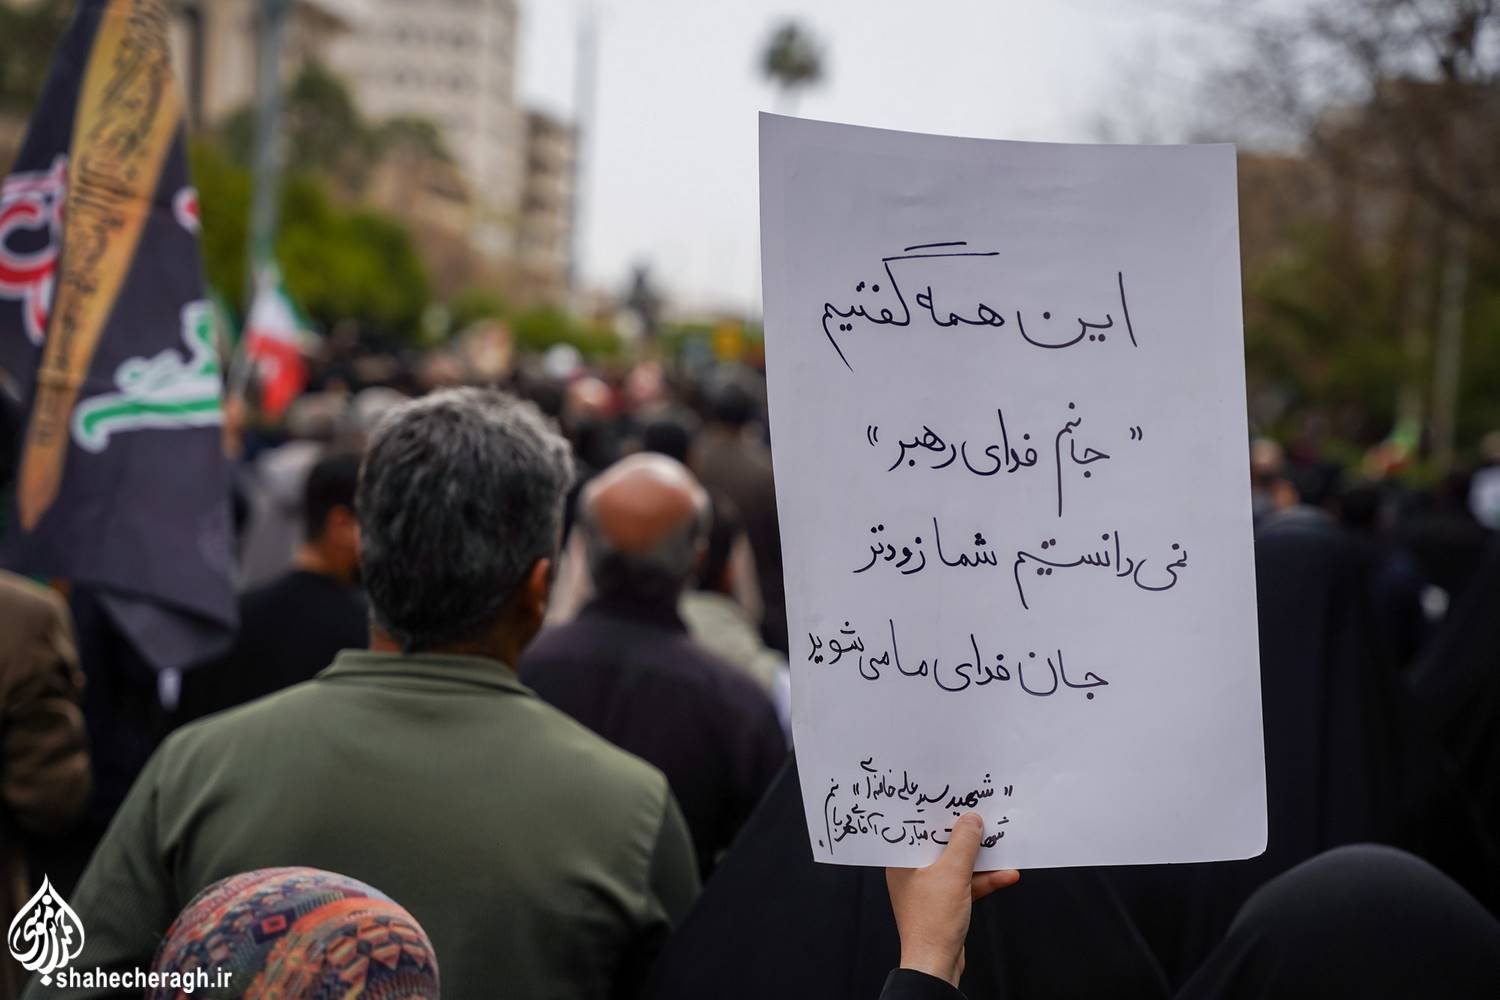 این همه گفتیم
"جانم فدای رهبر"
نمی دانستیم شما زودتر
جان فدای ما می شوید
"شهید سید علی خامنه ای"
شهادتت مبارک آقای مهربانم.
shahecheragh.ir